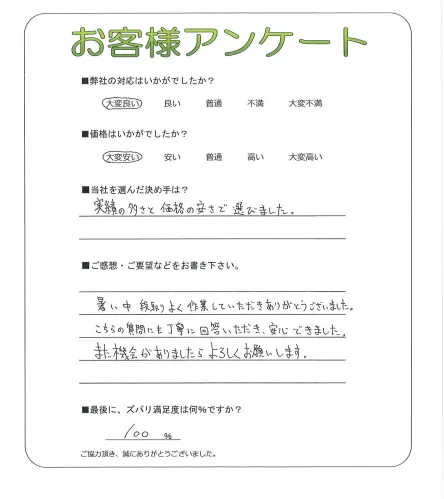 お客様アンケート
■弊社の対応はいかがでしたか？
大変良い 良い 普通 不満 大変不満
■価格はいかがでしたか？
大変安い 安い 普通 高い 大変高い
■当社を選んだ決め手は？
実績の多さと価格の安さで選びました。
■ご感想・ご要望などをお書き下さい。
暑い中段取りよく作業していただきありがとうございました。
こちらの質問にも丁寧に回答いただき、安心できました。
また機会がありましたらよろしくお願いします。
■最後に、ズバリ満足度は何％ですか？
100 ％
ご協力頂き、誠にありがとうございました。